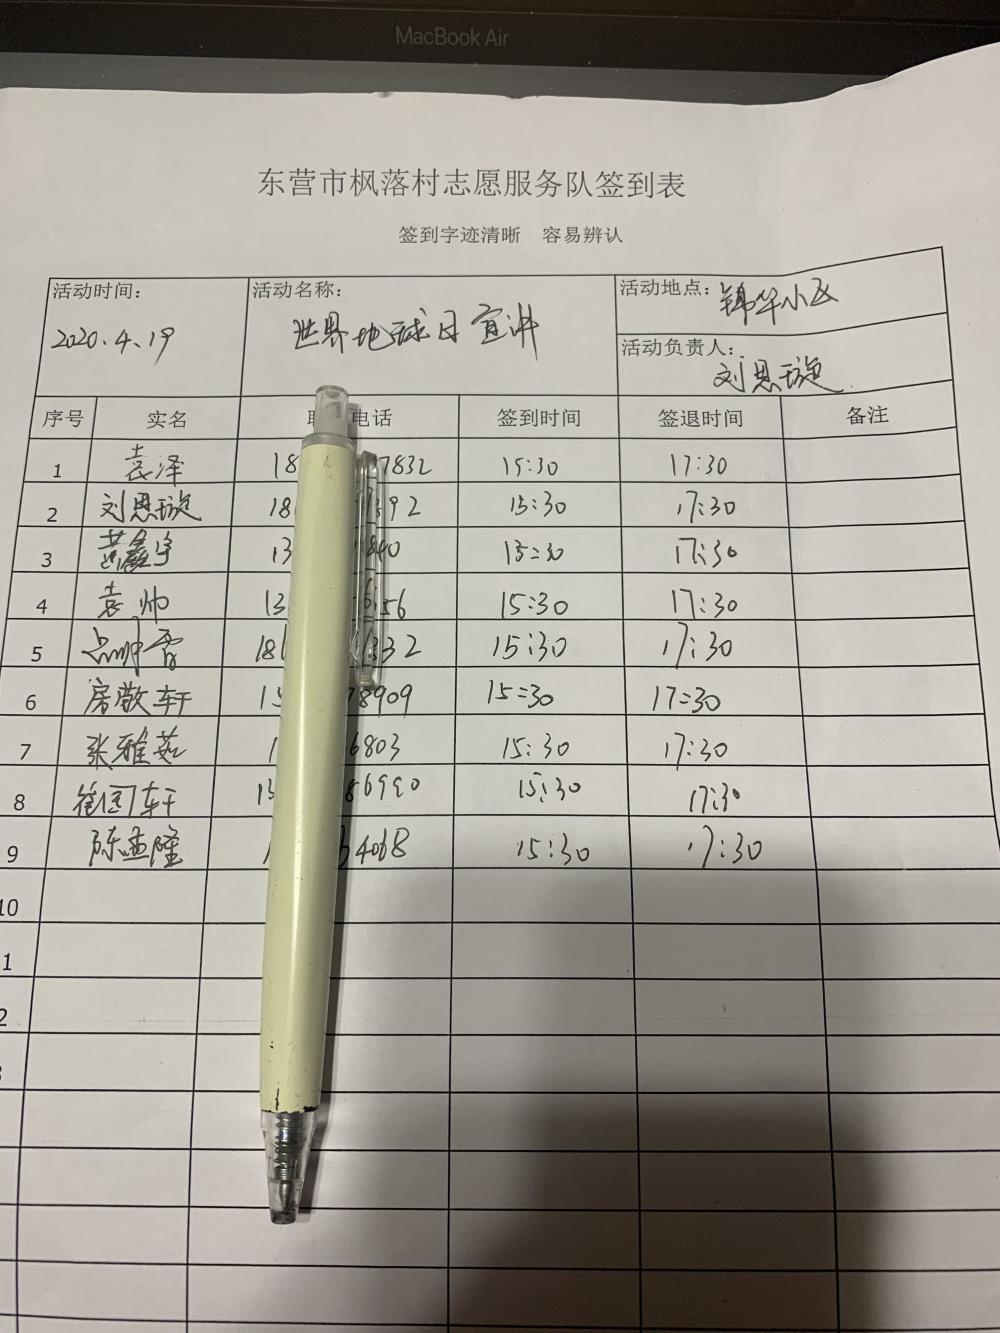 MacBook Air
东营市枫落村志愿服务队签到表
签到字迹清晰 容易辨认
活动时间： 活动名称： 活动地点：锦华小区
2020.4.19 世界地球日宣讲
活动负责人：刘思璇
序号 实名 电话 签到时间 签退时间 备注
1 袁泽 18 7832 15:30 17:30
2 刘思璇 18 392 15:30 17:30
3 鑫宇 13 840 15:30 17:30
4 袁帅 13 6156 15:30 17:30
5 186 1332 15:30 17:30
6 房敬轩 15 78909 15:30 17:30
7 张雅茹 1 6803 15:30 17:30
8 崔国轩 13 86990 15:30 17:30
9 陈孟隆 4068 15:30 17:30
10
1
2